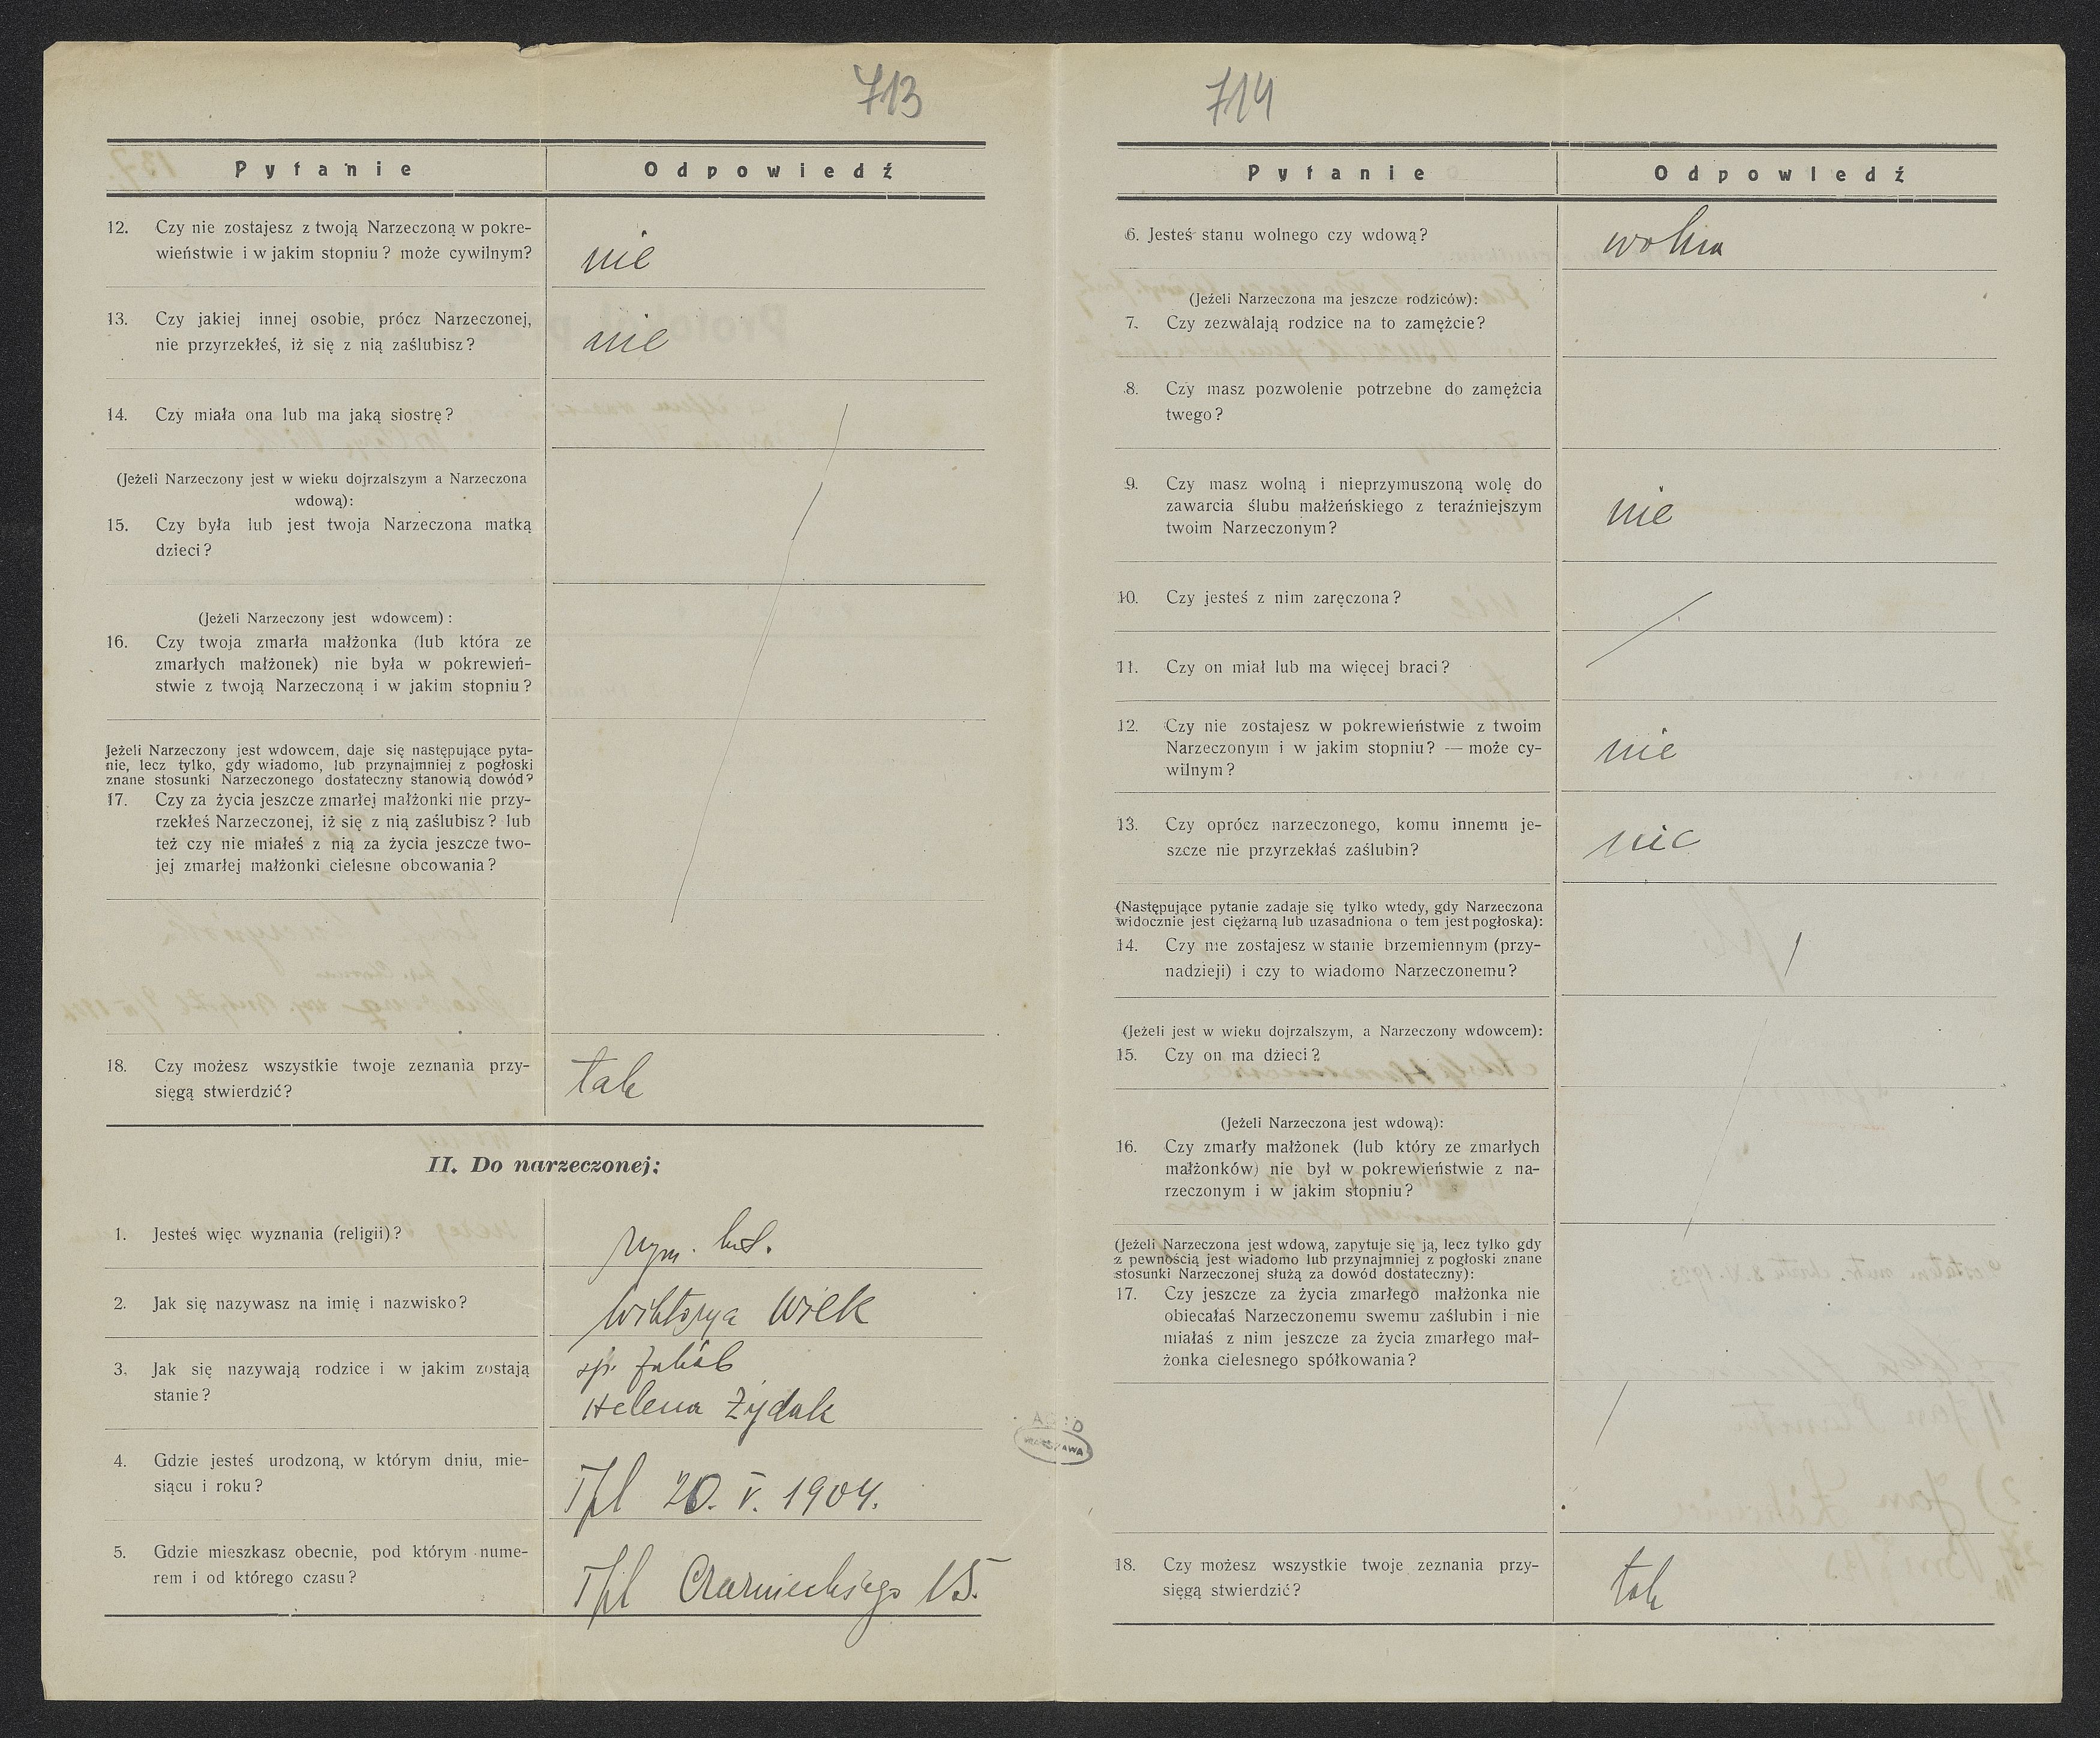 713
Pytanie Odpowiedź
12. Czy nie zostajesz z twoją Narzeczoną w pokre-
wieństwie i w jakim stopniu? może cywilnym?
nie
13. Czy jakiej innej osobie, prócz Narzeczonej,
nie przyrzekłeś, iż się z nią zaślubisz?
nie
14. Czy miała ona lub ma jaką siostrę?
(Jeżeli Narzeczony jest w wieku dojrzalszym a Narzeczona
wdową):
15. Czy była lub jest twoja Narzeczona matką
dzieci?
(Jeżeli Narzeczony jest wdowcem):
16. Czy twoja zmarła małżonka (lub która ze
zmarłych małżonek) nie była w pokrewień-
stwie z twoją Narzeczoną i w jakim stopniu?
Jeżeli Narzeczony jest wdowcem, daje się następujące pyta-
nie, lecz tylko, gdy wiadomo, lub przynajmniej z pogłoski
znane stosunki Narzeczonego dostateczny stanowią dowód?
17. Czy za życia jeszcze zmarłej małżonki nie przy-
rzekłeś Narzeczonej, iż się z nią zaślubisz? lub
też czy nie miałeś z nią za życia jeszcze two-
jej zmarłej małżonki cielesne obcowania?
18. Czy możesz wszystkie twoje zeznania przy-
sięgą stwierdzić?
tak
II. Do narzeczonej:
1. Jesteś więc wyznania (religii)?
rzym. kat.
2. Jak się nazywasz na imię i nazwisko?
Wiktorya Wilk
3. Jak się nazywają rodzice i w jakim zostają
stanie?
śp. Jakób
Helena Żydak
4. Gdzie jesteś urodzoną, w którym dniu, mie-
siącu i roku?
Tpl 20. V. 1904.
5. Gdzie mieszkasz obecnie, pod którym nume-
rem i od którego czasu?
Tpl Czarnieckiego 15.
WARSZAWA
714
Pytanie Odpowiedź
6. Jesteś stanu wolnego czy wdową?
wolna
(Jeżeli Narzeczona ma jeszcze rodziców):
7. Czy zezwalają rodzice na to zamężcie?
8. Czy masz pozwolenie potrzebne do zamężcia
twego?
9. Czy masz wolną i nieprzymuszoną wolę do
zawarcia ślubu małżeńskiego z teraźniejszym
twoim Narzeczonym?
nie
10. Czy jesteś z nim zaręczona?
11. Czy on miał lub ma więcej braci?
12. Czy nie zostajesz w pokrewieństwie z twoim
Narzeczonym i w jakim stopniu? — może cy-
wilnym?
nie
13. Czy oprócz narzeczonego, komu innemu je-
szcze nie przyrzekłaś zaślubin?
nie
(Następujące pytanie zadaje się tylko wtedy, gdy Narzeczona
widocznie jest ciężarną lub uzasadniona o tem jest pogłoska):
14. Czy nie zostajesz w stanie brzemiennym (przy-
nadzieji) i czy to wiadomo Narzeczonemu?
(Jeżeli jest w wieku dojrzalszym, a Narzeczony wdowcem):
15. Czy on ma dzieci?
(Jeżeli Narzeczona jest wdową):
16. Czy zmarły małżonek (lub który ze zmarłych
małżonków) nie był w pokrewieństwie z na-
rzeczonym i w jakim stopniu?
(Jeżeli Narzeczona jest wdową, zapytuje się ją, lecz tylko gdy
z pewnością jest wiadomo lub przynajmniej z pogłoski znane
stosunki Narzeczonej służą za dowód dostateczny):
17. Czy jeszcze za życia zmarłego małżonka nie
obiecałaś Narzeczonemu swemu zaślubin i nie
miałaś z nim jeszcze za życia zmarłego mał-
żonka cielesnego spółkowania?
18. Czy możesz wszystkie twoje zeznania przy-
sięgą stwierdzić?
tak